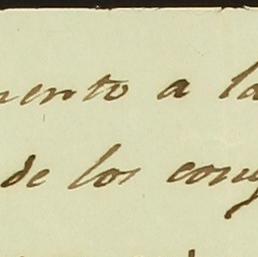 mento a la
de los cong